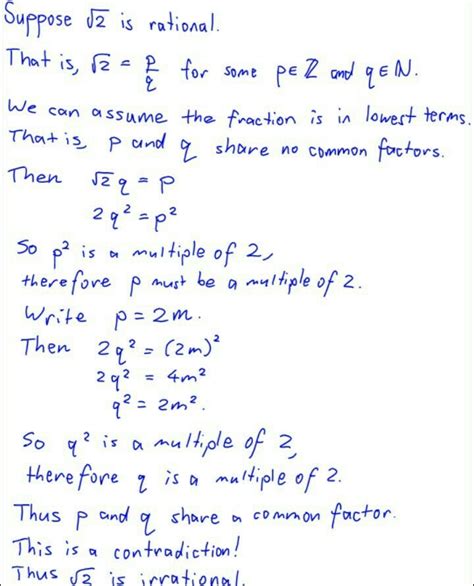 Suppose √2 is rational.
That is, √2 = p/q for some p∈ℤ and q∈ℕ.
We can assume the fraction is in lowest terms.
That is, p and q share no common factors.
Then √2 q = p
2q² = p²
So p² is a multiple of 2,
therefore p must be a multiple of 2.
Write p = 2m.
Then 2q² = (2m)²
2q² = 4m²
q² = 2m².
So q² is a multiple of 2,
therefore q is a multiple of 2.
Thus p and q share a common factor.
This is a contradiction!
Thus √2 is irrational.